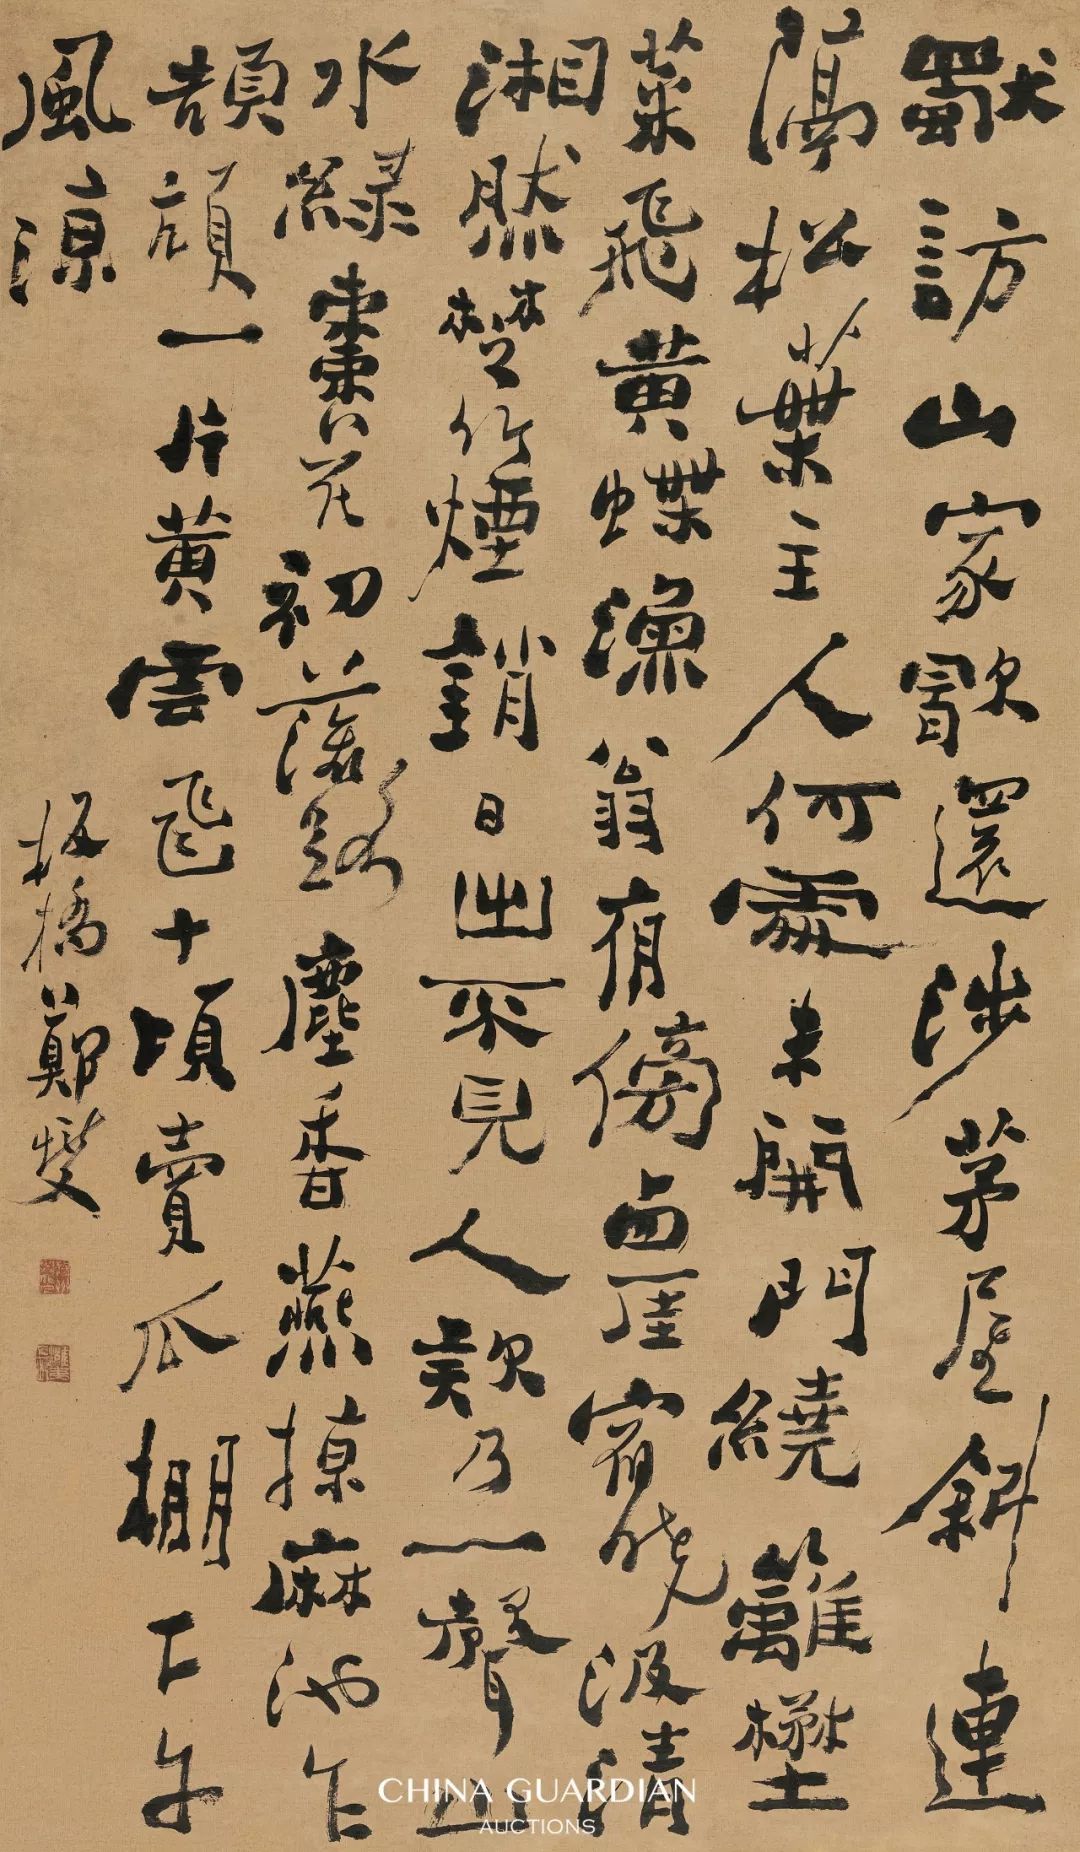 獨訪山家歇還涉茅屋斜連
隔松葉主人何處未開門繞籬壄
菜飛黃蝶漁翁夜傍西厓宿曉汲清
湘然楚竹煙銷日出不見人欸乃一聲山
水綠棗花初落路塵香燕掠麻池乍
頡頏一片黃雲飛十頃賣瓜棚下午
風涼
板橋鄭燮
CHINA GUARDIAN
AUCTIONS